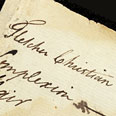 Fletcher Christian
Complexion
Hair